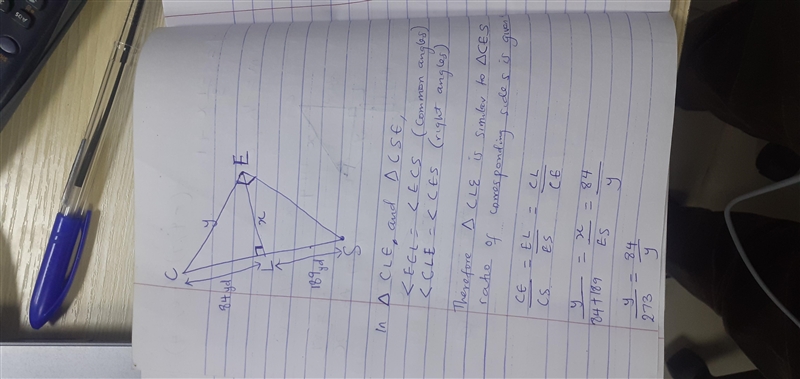 C
84yd
y
E
L
x
189yd
S
In △ CLE, and △ CSE,
<ECL = <ECS (common angles)
<CLE = <CES (right angles)
Therefore △ CLE is similar to △CES
ratio of corresponding sides is given
CE/CS = EL/ES = CL/CE
y/84+189 = x/ES = 84/y
y/273 = 84/y